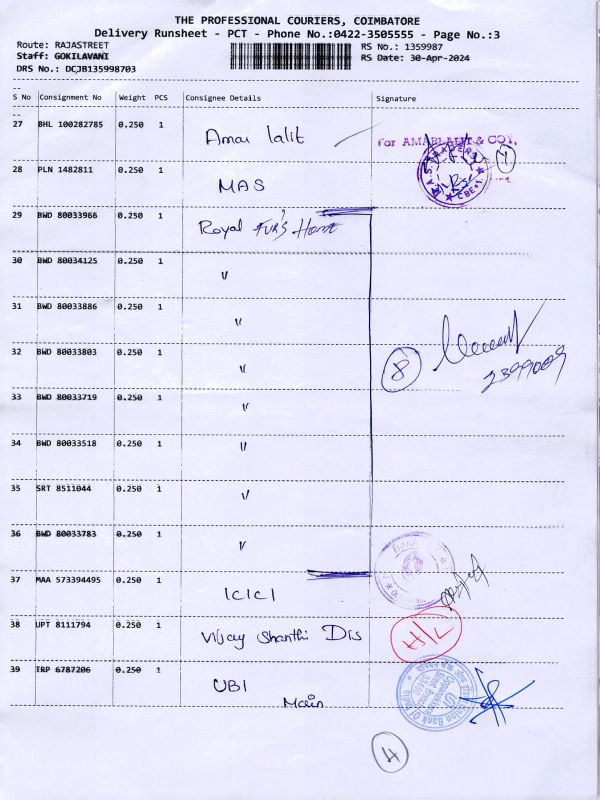 THE PROFESSIONAL COURIERS, COIMBATORE
Delivery Runsheet - PCT - Phone No.:0422-3505555 - Page No.:3
Route: RAJASTREET
RS No.: 1359987
Staff: GOKILAVANI
RS Date: 30-Apr-2024
DRS No.: DCJB135998703
S No Consignment No Weight PCS Consignee Details Signature
27 BHL 100282785 0.250 1 Amar lalit
for AMARLALIT & COY.
CBE-1
28 PLN 1482811 0.250 1 MAS
29 BWD 80033966 0.250 1 Royal FUR'S Home
30 BWD 80034125 0.250 1 "
31 BWD 80033886 0.250 1 "
32 BWD 80033803 0.250 1 "
8
2399009
33 BWD 80033719 0.250 1 "
34 BWD 80033518 0.250 1 "
35 SRT 8511044 0.250 1 "
36 BWD 80033783 0.250 1 "
Bank
37 MAA 573394495 0.250 1 ICICI
38 UPT 8111794 0.250 1 Vijay Shanthi Dis
H/L
39 TRP 6787206 0.250 1 UBI
Main
Union Bank Of
4